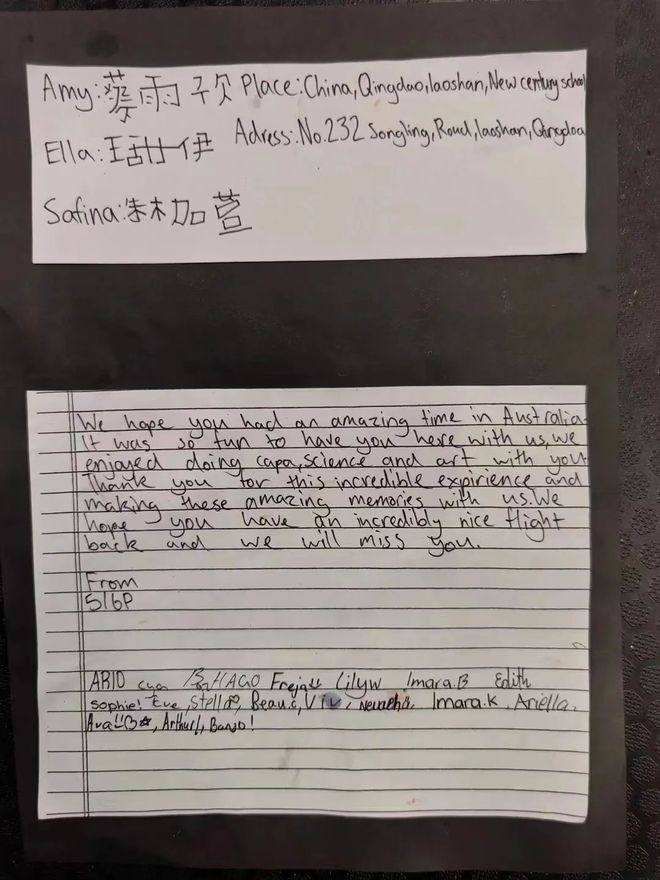 Amy:蔡雨 Place:China,Qingdao,laoshan,New century school
Ella: 伊 Adress:No.232 Songling,Roud,laoshan,Qingdoa
Safina: 加萱
We hope you had an amazing time in Australia.
It was so fun to have you here with us,we
enjoyed doing capa,science and art with you
Thank you for this incredible expirience and
making these amazing memories with us.We
hope you have an incredibly nice flight
back and we will miss you.
From
5/6P
ARIO Freja Lilyw Imara.B Edith
sophie! Eve,Stella, Beau.c,Viv, Imara.K, Ariella.
Ava, Arthur!, Banjo!